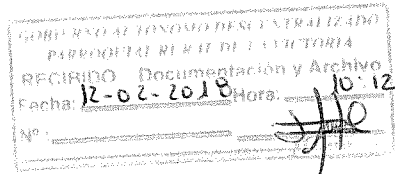 GOBIERNO AUTONOMO DESCENTRALIZADO
PARROQUIAL RURAL DE LA VICTORIA
RECIBIDO Documentación y Archivo
Fecha: 12-02-2018 Hora: 10:12
Nº